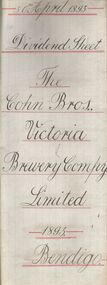 April 1895
Dividend Sheet
The
Cohn Bros.
Victoria
Brewery Compy
Limited
1895
Bendigo